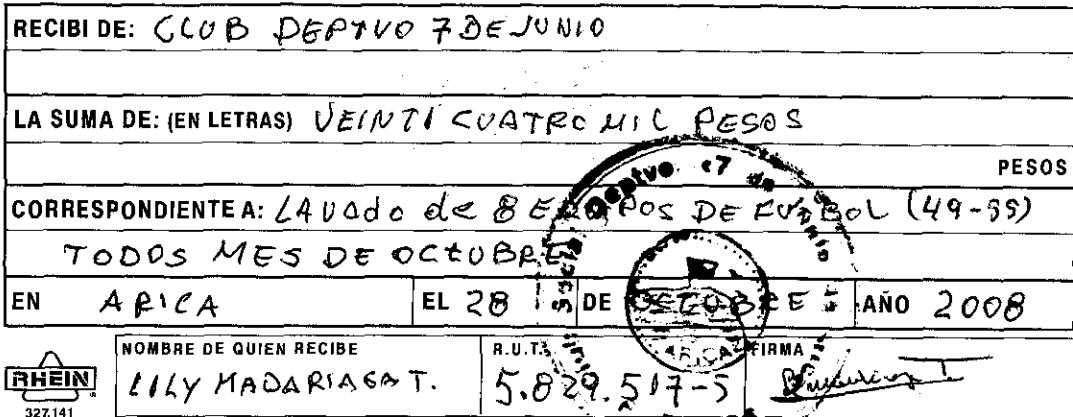 RECIBI DE: CLUB DEPTVO 7 DE JUNIO
LA SUMA DE: (EN LETRAS) VEINTI CUATRO MIL PESOS
PESOS
CORRESPONDIENTE A: LAVADO de 8 EQUIPOS DE FUTBOL (49-55)
TODOS MES DE OCTUBRE
EN ARICA EL 28 DE OCTUBRE AÑO 2008
NOMBRE DE QUIEN RECIBE R.U.T. FIRMA
LILY MADARIAGA T. 5.829.517-5
RHEIN
327.141
Deptvo 7 de Junio
ARICA